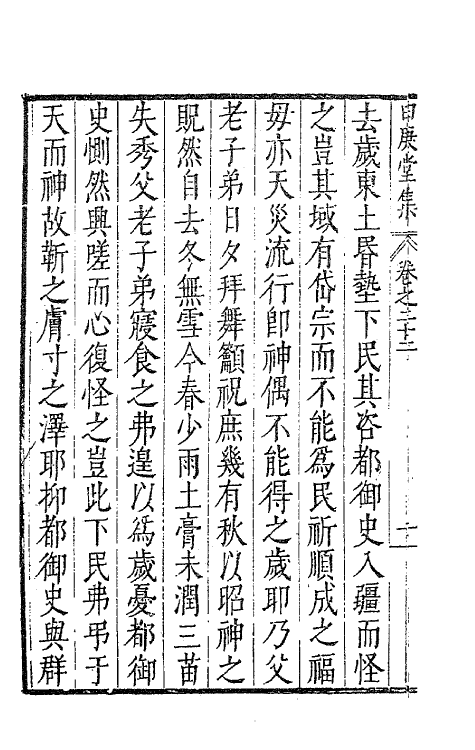 甲庚堂集 卷之三十二 十一
去歲東土昬墊下民其咨都御史入疆而怪
之豈其域有岱宗而不能爲民祈順成之福
毋亦天災流行卽神偶不能得之歲耶乃父
老子弟日夕拜舞籲祝庶幾有秋以昭神之
貺然自去冬無雪今春少雨土膏未潤三苗
失秀父老子弟寢食之弗遑以爲歲憂都御
史惻然興嗟而心復怪之豈此下民弗弔于
天而神故靳之膚寸之澤耶抑都御史與群